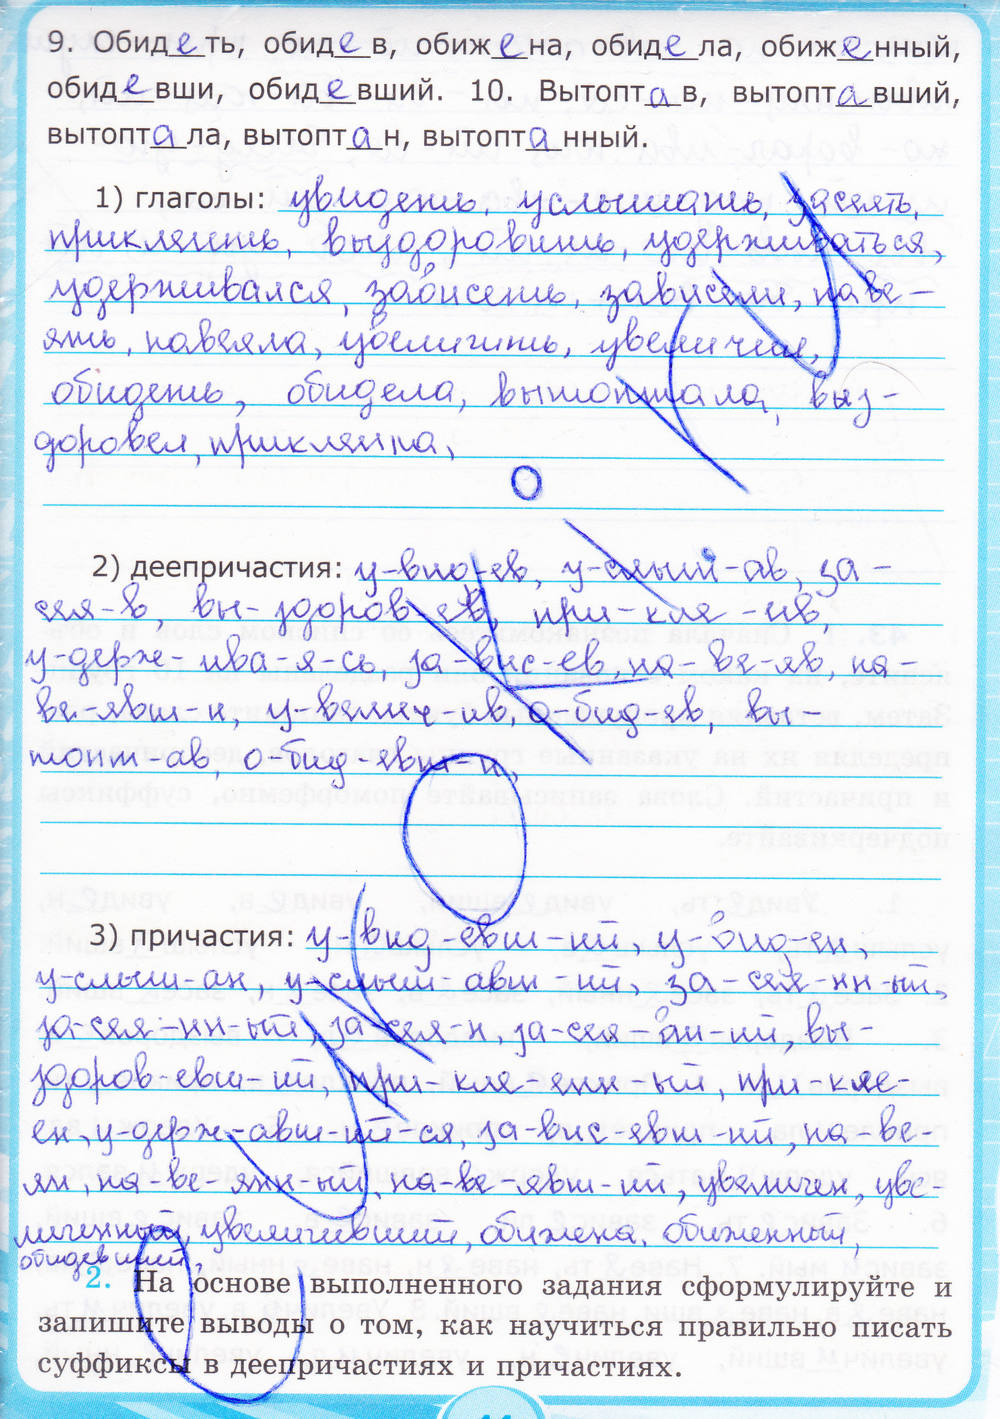 9. Обидеть, обидев, обижена, обидела, обиженный,
обидевши, обидевший. 10. Вытоптав, вытоптавший,
вытоптала, вытоптан, вытоптанный.
1) глаголы: увидеть, услышать, засеять,
приклеить, выздоровить, удерживаться,
удерживался, зависеть, зависели, наве-
ять, навеяла, увеличить, увеличил,
обидеть, обидела, вытоптала, выз-
доровел,
2) деепричастия: у-вид-ев, у-слыш-ав, за-
сея-в, вы-здоров-ев, при-кле-ив,
у-держ-ива-я-сь, за-вис-ев, на-ве-яв, на-
ве-явш-и, у-велич-ив, о-бид-ев, вы-
топт-ав, о-бид-евш-и,
3) причастия: у-вид-евш-ий, у-вид-ен,
у-слыш-ан, у-слыш-авш-ий, за-сея-нн-ый,
за-сея-нн-ый, за-сея-н, за-сея-вш-ий, вы-
здоров-евш-ий, при-кле-енн-ый, при-кле-
ен, у-держ-авш-ий-ся, за-вис-евш-ий, на-ве-
ян, на-ве-янн-ый, на-ве-явш-ий, увеличен, уве-
личенный, увеличивший, обижена, обиженный,
обидевший,
2. На основе выполненного задания сформулируйте и
запишите выводы о том, как научиться правильно писать
суффиксы в деепричастиях и причастиях.